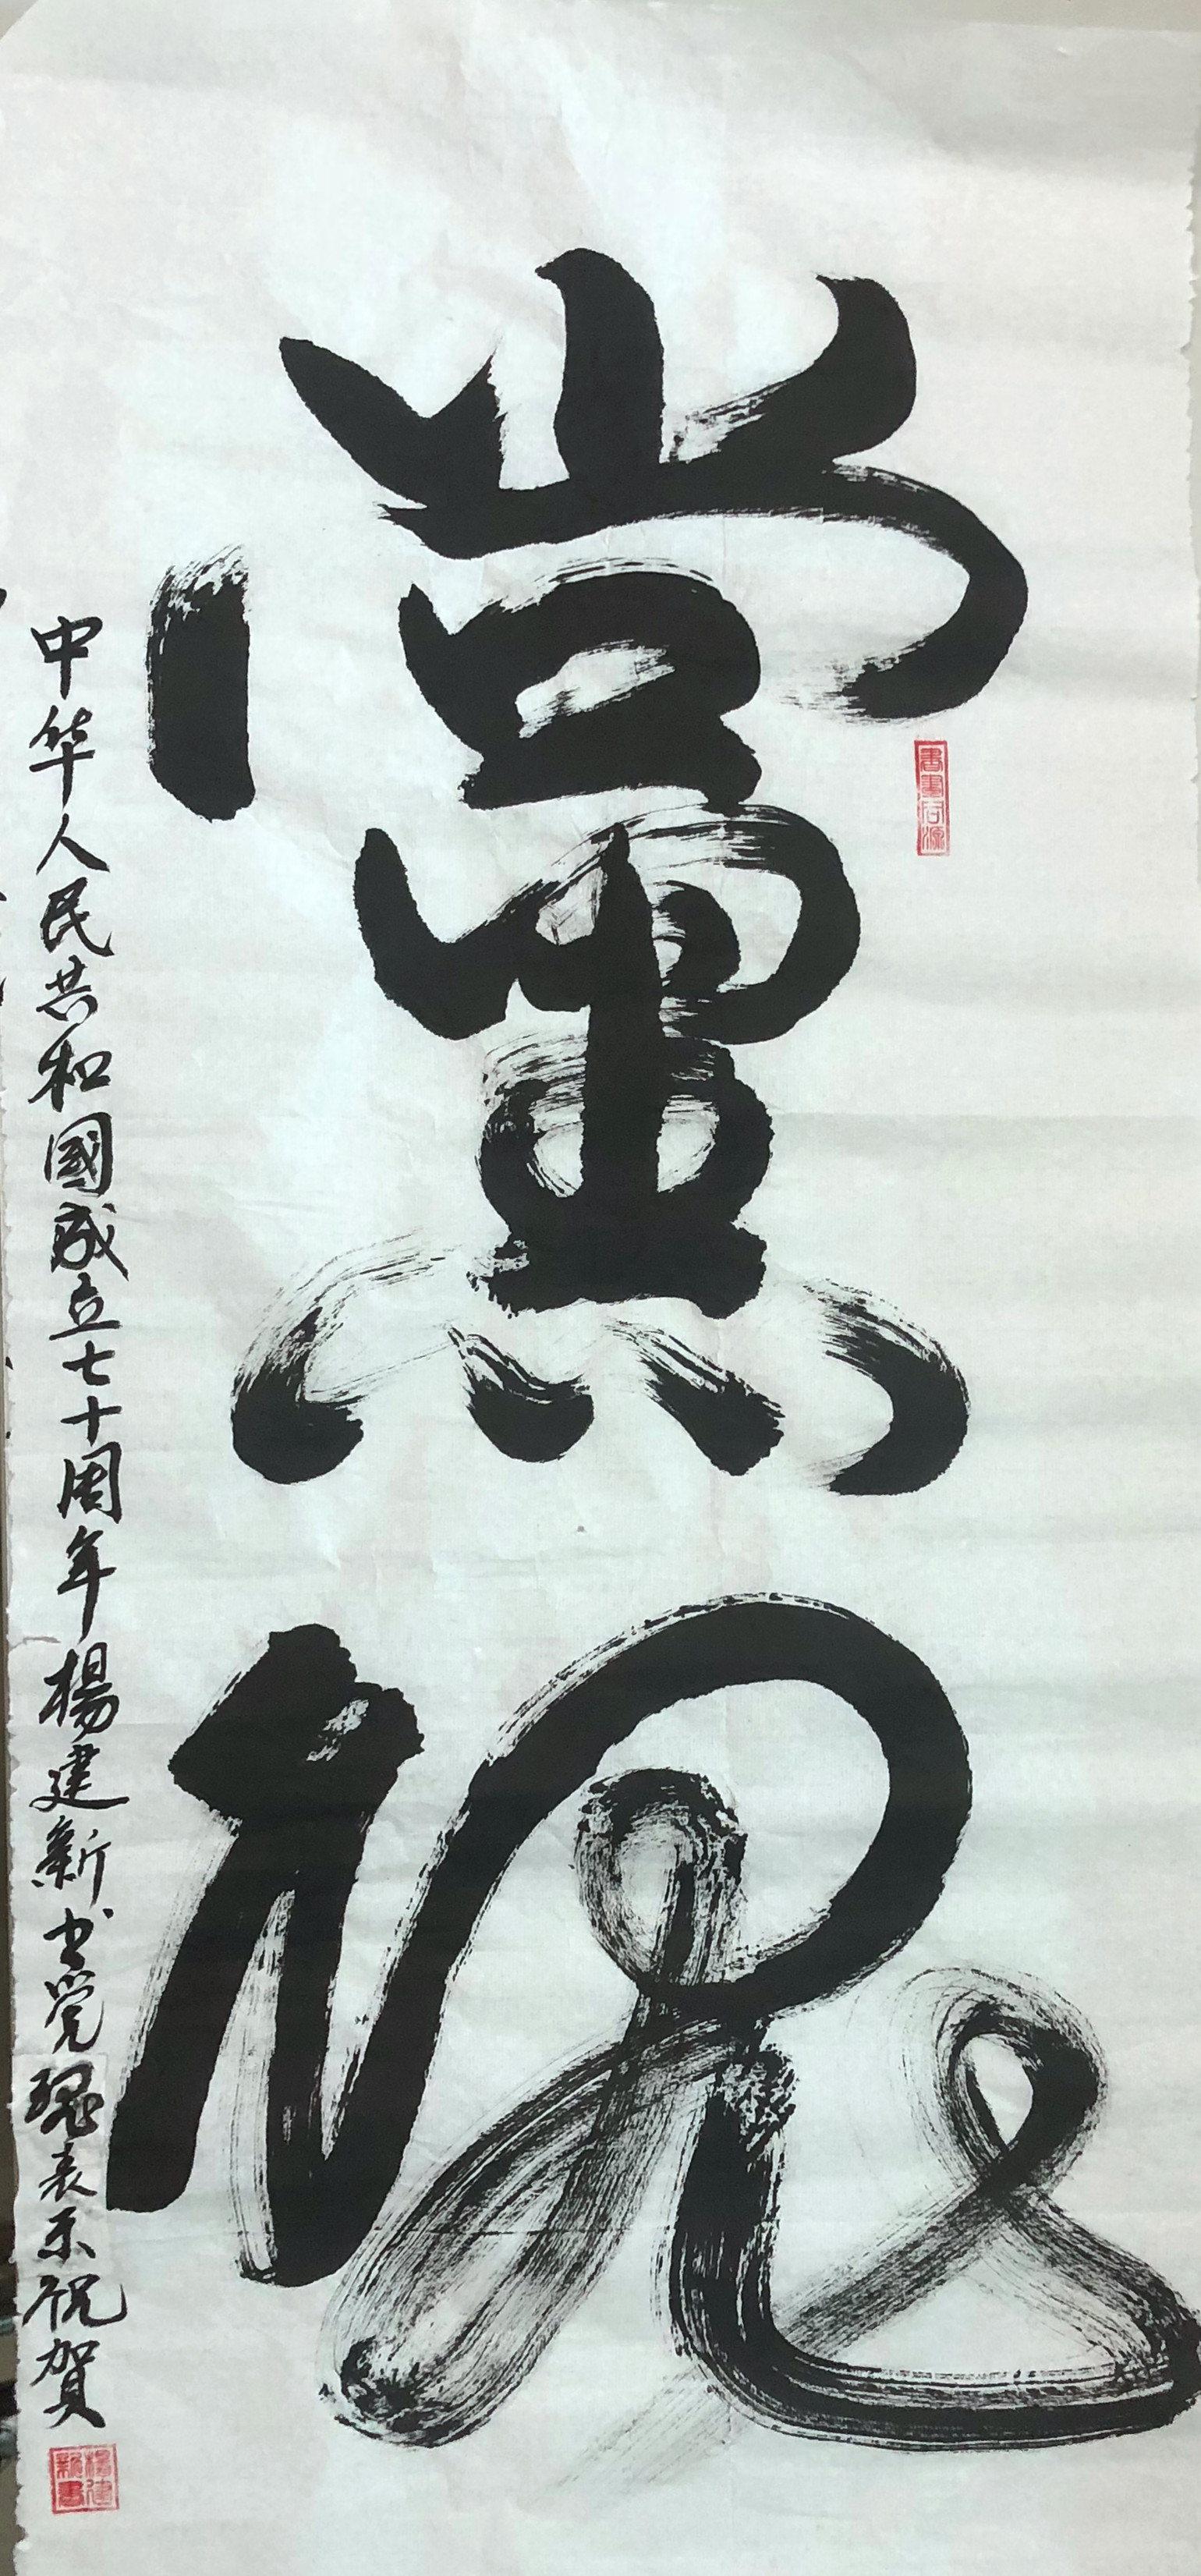 黨魂
中华人民共和國成立七十周年楊建新书党魂表示祝賀
書畫同源
楊建新書